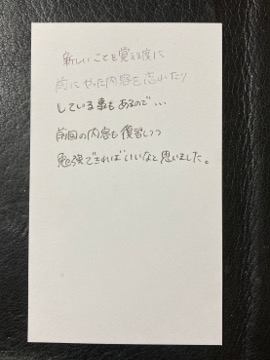 新しいことを覚える度に
前にやった内容を忘れたり
している事もあるので...
前回の内容も復習しつつ
勉強できればいいなと思いました。